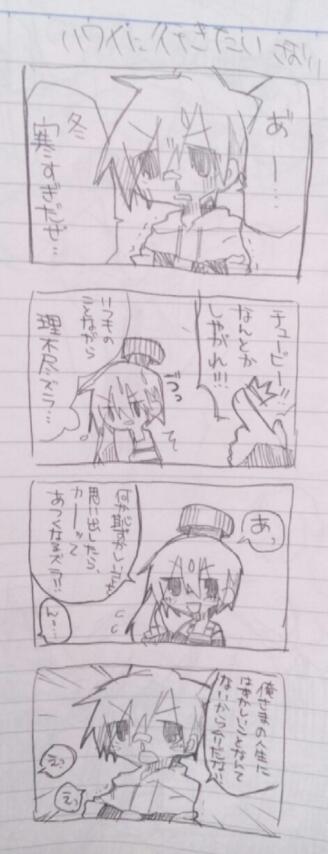 ハワイに行きたい
あ゛ー……
冬
寒すぎだぜ…
チューピー!!
なんとか
しやがれ!!!
いつもの
ことながら
理不尽ズラ…
あっ
何か恥ずかしいことを
思い出したら、
カーッて
あつくなるズラ!!
ん…
俺さまの人生に
はずかしいことなんて
ないからムリだ!!
えっ
えっ